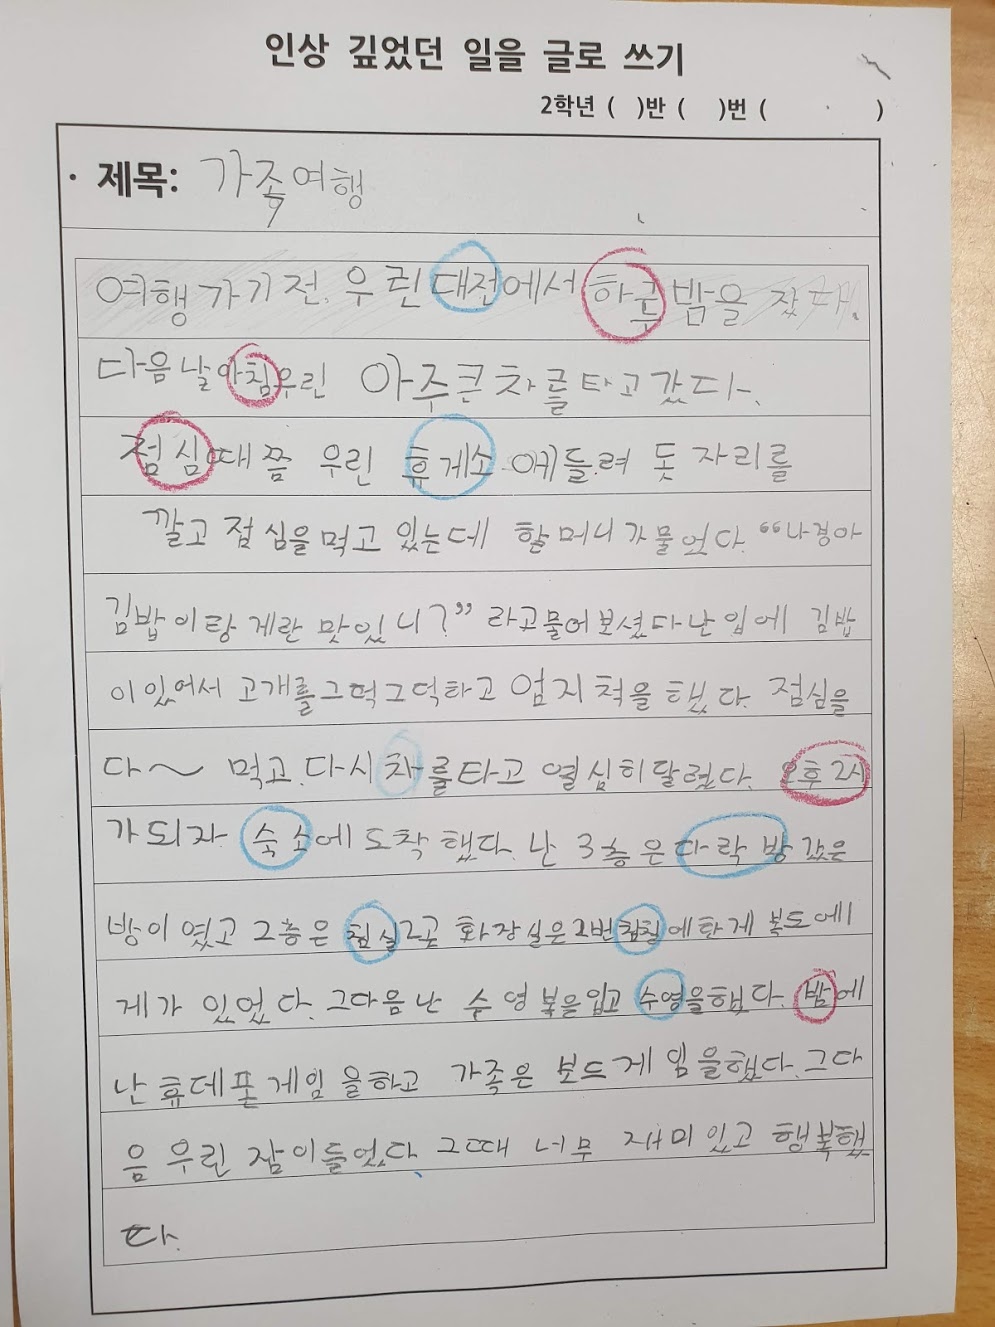 인상 깊었던 일을 글로 쓰기
2학년 ( )반 ( )번 ( )
· 제목: 가족여행
여행 가기 전. 우린 대전에서 하루 밤을 잤다.
다음날 아침 우린 아주 큰 차를 타고 갔다.
점심때쯤 우린 휴게소에 들려 돗자리를
깔고 점심을 먹고 있는데 할머니가 물었다. “나경아
김밥이랑 계란 맛있니?” 라고 물어보셨다 난 입에 김밥
이 있어서 고개를 그덕그덕하고 엄지척을 했다. 점심을
다~ 먹고. 다시 차를 타고 열심히 달렸다. 오후 2시
가 되자 숙소에 도착했다. 난 3층은 다락방 같은
방이 였고 2층은 침실2곳 화장실은 2번 침실에 한게 복도에1
게가 있었다. 그다음 난 수영복을 입고 수영을 했다. 밤에
난 휴데폰 게임을 하고 가족은 보드게임을 했다. 그다
음 우린 잠이 들었다. 그때 너무 재미있고 행복했
다.